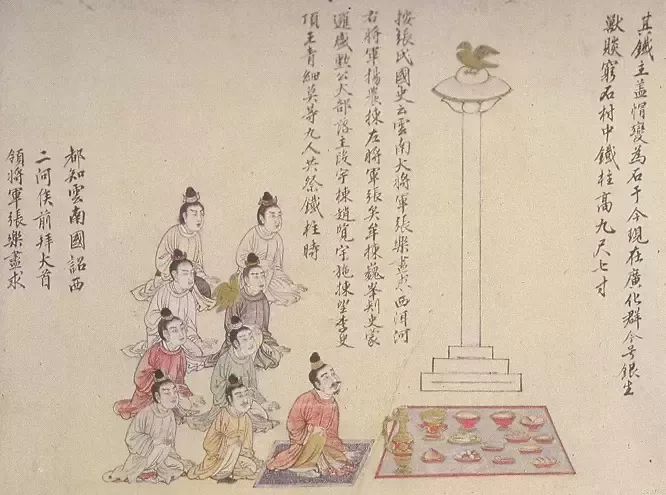 其鐵主蓋帽變為石于今現在廣化群今号銀生
獸賧窮石村中鐵柱高九尺七寸
按張氏國史云雲南大將軍張樂盡求西洱河
右將軍揚農棟左將軍張矣牟棟巍峯刾史蒙
邏盛勲公大部落主段宇棟趙覽宇施棟望李史
頂王青細莫等九人共祭鐵柱時
都知雲南國詔西
二河侯前拜大首
領將軍張樂盡求